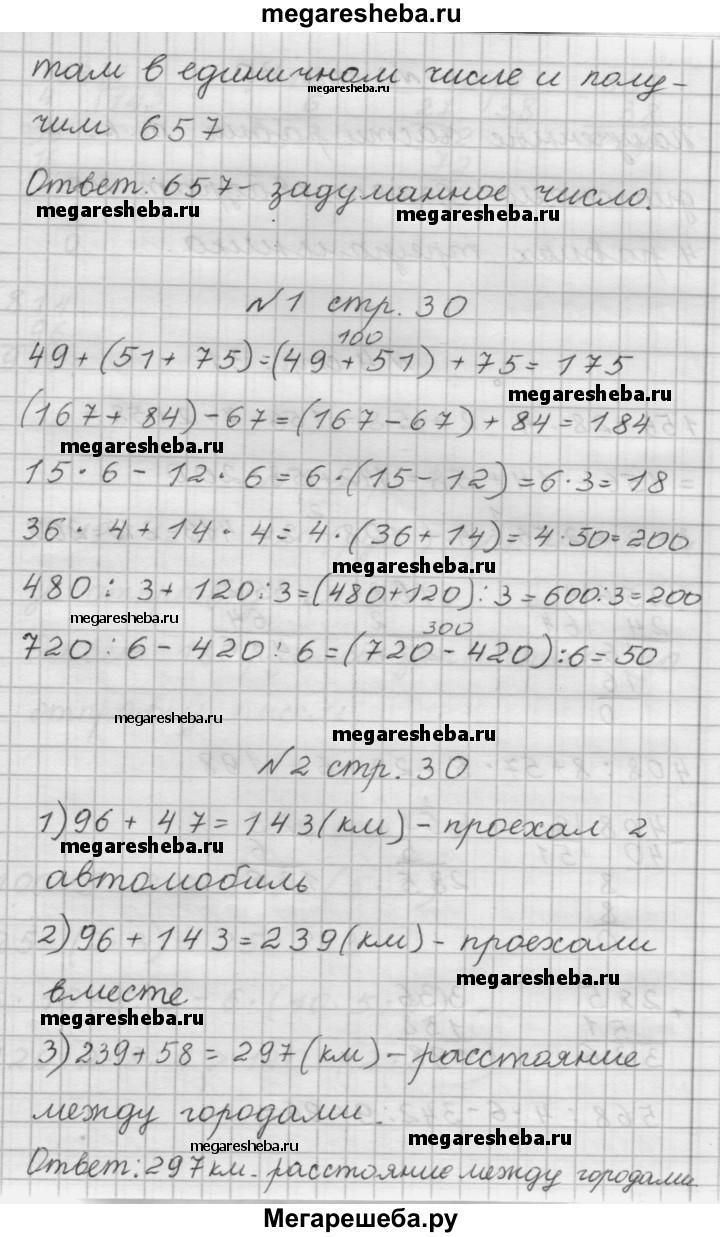 megaresheba.ru
там в единичном числе и полу-
megaresheba.ru
чим 657
Ответ: 657 - задуманное число.
megaresheba.ru
megaresheba.ru
№1 стр. 30
100
49 + (51 + 75) = (49 + 51) + 75 = 175
megaresheba.ru
(167 + 84) - 67 = (167 - 67) + 84 = 184
megaresheba.ru
15 · 6 - 12 · 6 = 6 · (15 - 12) = 6 · 3 = 18
36 · 4 + 14 · 4 = 4 · (36 + 14) = 4 · 50 = 200
megaresheba.ru
480 : 3 + 120 : 3 = (480 + 120) : 3 = 600 : 3 = 200
megaresheba.ru
300
720 : 6 - 420 : 6 = (720 - 420) : 6 = 50
megaresheba.ru
megaresheba.ru
№2 стр. 30
1) 96 + 47 = 143 (км) - проехал 2
megaresheba.ru
автомобиль
2) 96 + 143 = 239 (км) - проехали
megaresheba.ru
вместе
megaresheba.ru
3) 239 + 58 = 297 (км) - расстояние
megaresheba.ru
между городами.
megaresheba.ru
megaresheba.ru
Ответ: 297 км - расстояние между городами
megaresheba.ru
megaresheba.ru
Мегарешеба.ру